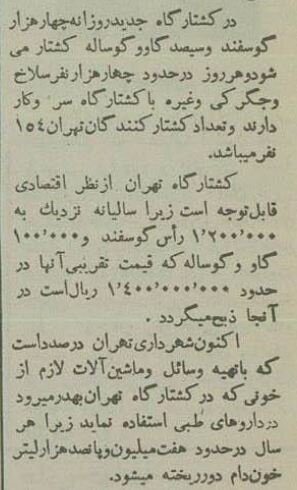 در کشتارگاه جدید روزانه چهار هزار
گوسفند وسیصد گاو و گوساله کشتار می
شود و هر روز در حدود چهار هزار نفر سلاخ
و جگرکی وغیره با کشتارگاه سر و کار
دارند و تعداد کشتار کنندگان تهران ۱۵۴
نفر میباشد.
کشتارگاه تهران از نظر اقتصادی
قابل توجه است زیرا سالیانه نزدیك به
۱٬۲۰۰٬۰۰۰ رأس گوسفند و ۱۰۰٬۰۰۰
گاو و گوساله که قیمت تقریبی آنها در
حدود ۱٬۴۰۰٬۰۰۰٬۰۰۰ ریال است در
آنجا ذبح میگردد .
اکنون شهرداری تهران در صدد است
که باتهیه وسائل و ماشین آلات لازم از
خونی که در کشتارگاه تهران بهدر میرود
در داروهای طبی استفاده نماید زیرا هر
سال در حدود هفت میلیون و پانصد هزار لیتر
خون دام دور ریخته میشود.